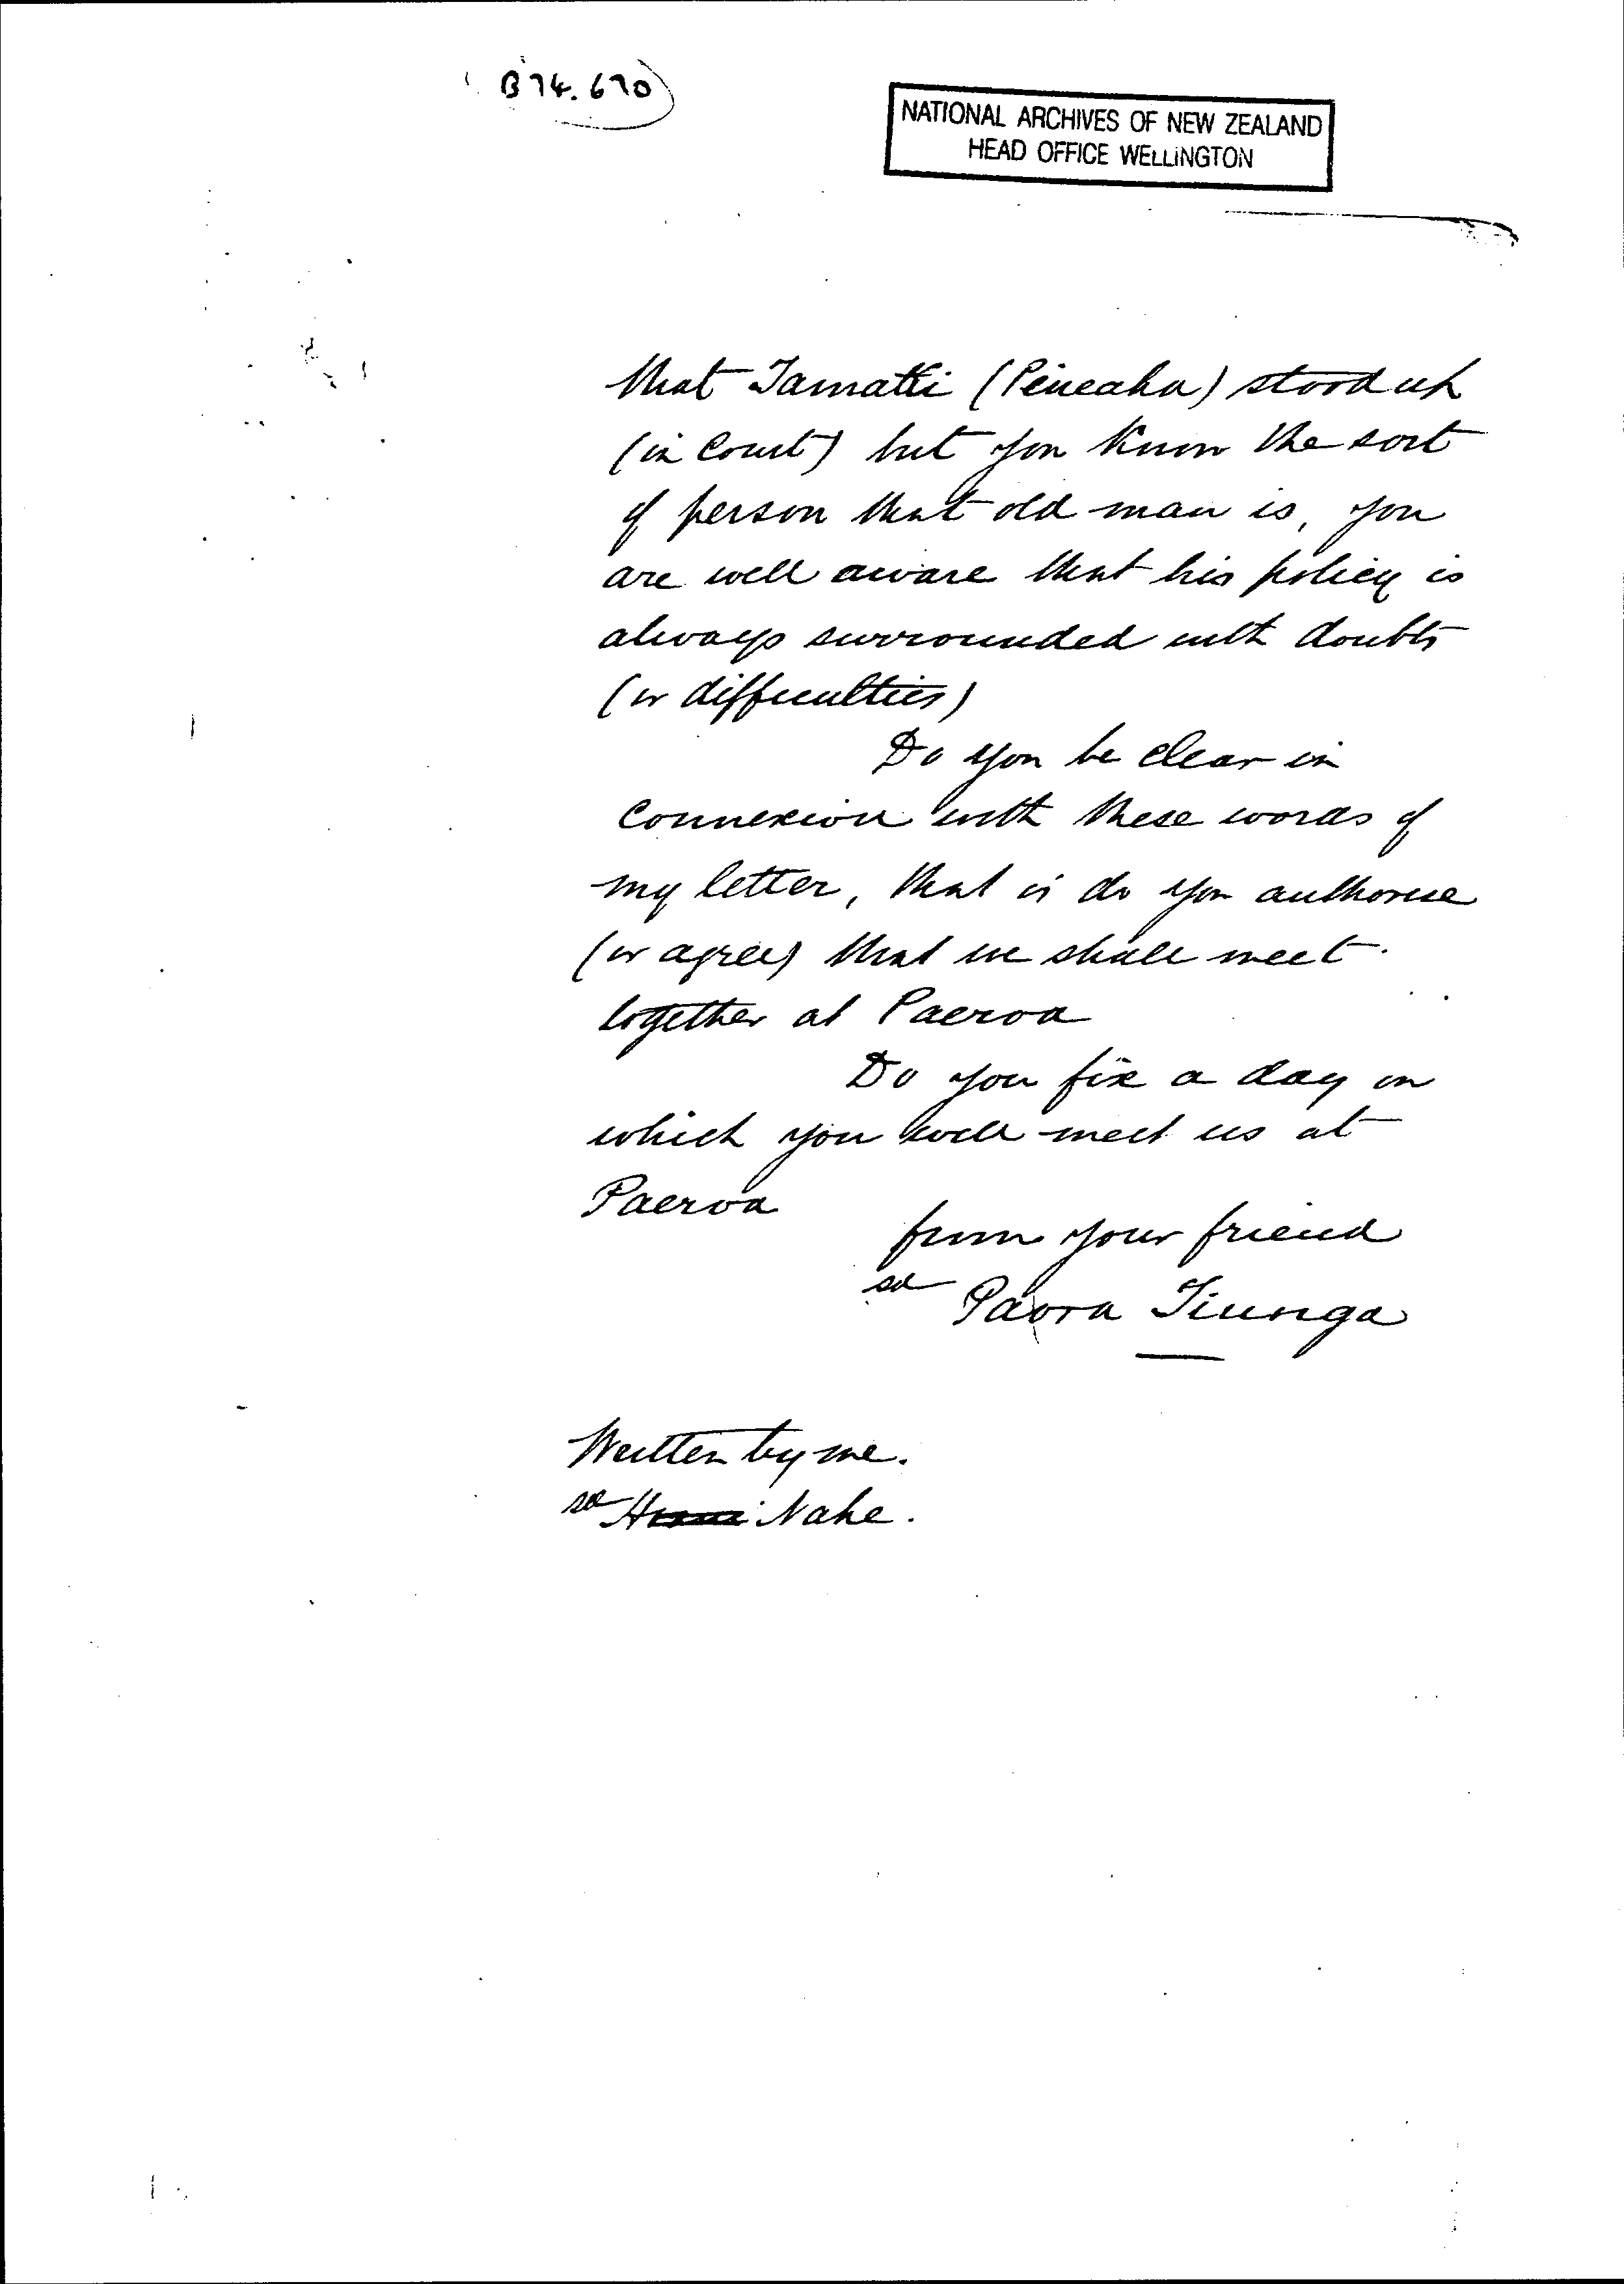 B 74. 670
NATIONAL ARCHIVES OF NEW ZEALAND
HEAD OFFICE WELLINGTON
that Tamatti (Pineaha) stood up
(in Court) but you know the sort
of person that old man is, you
are well aware that his policy is
always surrounded with doubts
(or difficulties)
Do you be clear in
connexion with these words of
my letter, that is do you authorise
(or agree) that we shall meet
together at Paeroa
Do you fix a day on
which you will meet us at
Paeroa
from your friend
sd Paora Tiunga
Written by me.
sd Nahe.